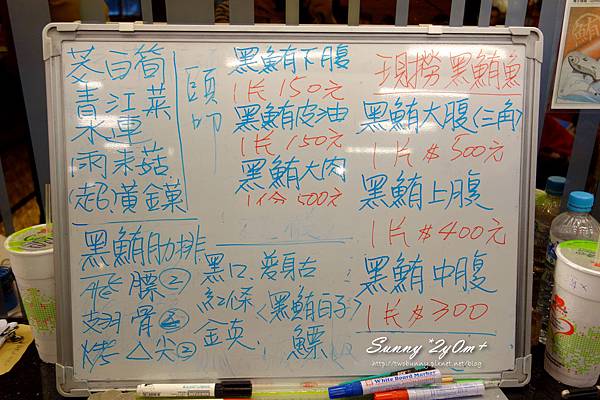 茭白筍
青江菜
水蓮
雨來菇
(超)黃金菓
頭
黑鮪下腹
1片150元
黑鮪皮油
1片150元
黑鮪大肉
1份500元
現撈黑鮪魚
黑鮪大腹(三角)
1片$500元
黑鮪上腹
1片$400元
黑鮪中腹
1片$300
黑鮪肋排
飛膘②
翅骨②
烤△尖②
黑口.
紅條
金英.
〈黑鮪白子〉
鰾
Sunny *2y0m+
http://twobunny.pixnet.net/blog
White Board Marker